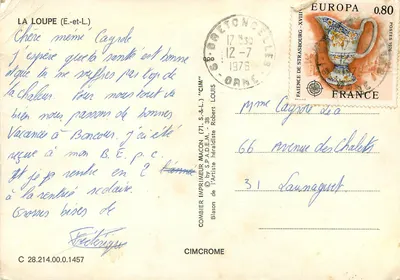 LA LOUPE (E.-et-L.)
Chère mémé Cagrole
j'espère que ta santé est bonne
et que tu ne souffres pas trop de
la chaleur. Pour nous tout va
bien nous passons de bonnes
vacances à Boncourt. j'ai été
reçue à mon B.E.p.c.
et je rentre en 2
à la rentrée scolaire.
Grosses bises de
Frédérique
C 28.214.00.0.1457
COMBIER IMPRIMEUR MACON (71. S.-&-L.) "CIM"
© by S.P.A.D.E.M. 38
Blason de l'Artiste héraldiste Robert LOUIS
CIMCROME
BRETONCELLES
12-7
1976
ORNE
EUROPA
0,80
FAIENCE DE STRASBOURG-XVIII
POSTES 1976
FRANCE
Mme Cagrole
66 avenue des Chalets
31 Launaguet